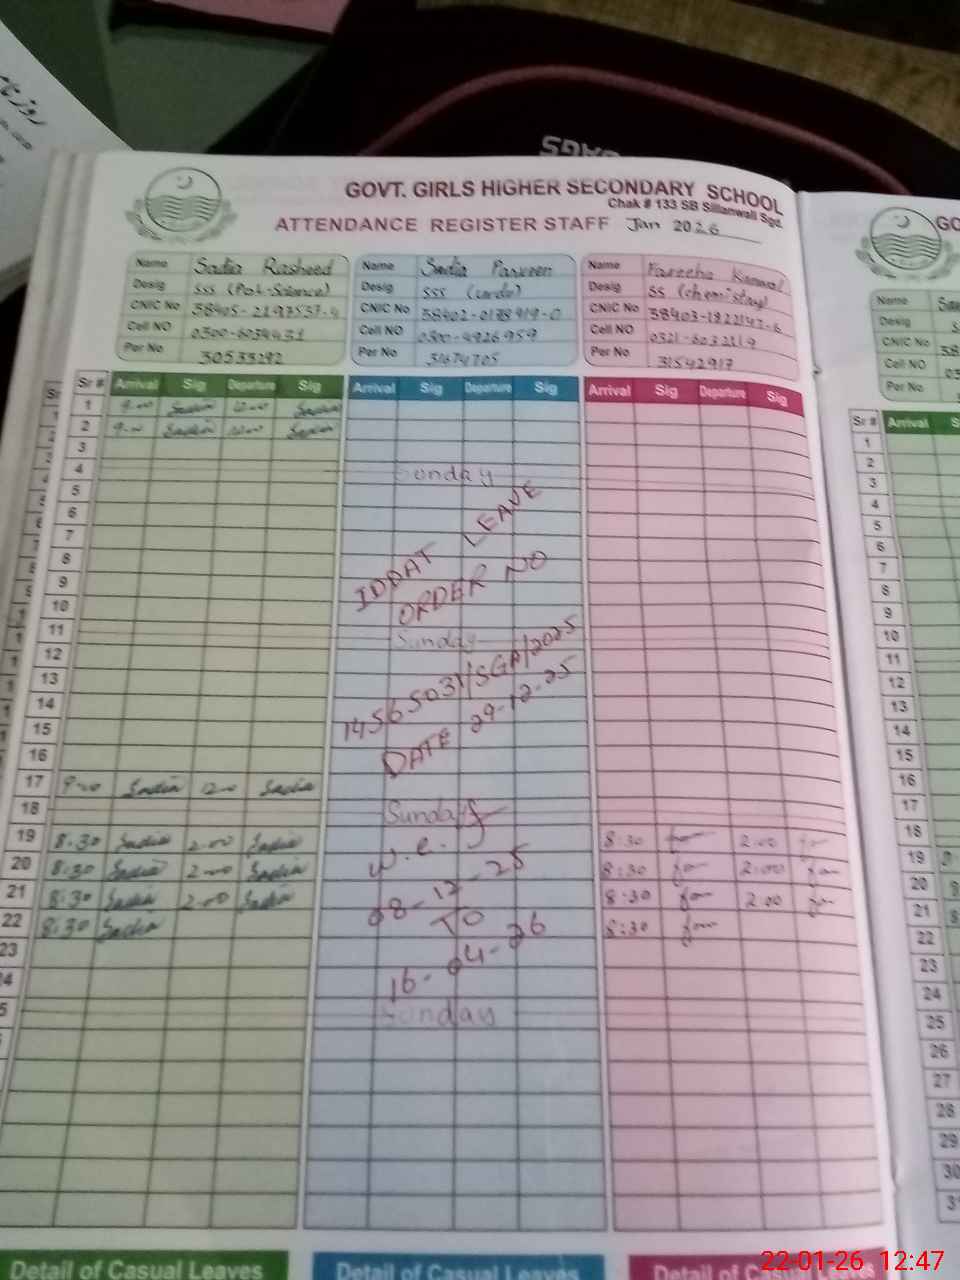 GOVT. GIRLS HIGHER SECONDARY SCHOOL
Chak # 133 SB Sillanwali Sgd.
ATTENDANCE REGISTER STAFF Jan 2026
Name Sadia Rasheed
Desig SSS (Pol-Science)
CNIC No
Cell NO
Per No
Name Sadia Parveen
Desig SSS (urdu)
CNIC No 38402-0178919-0
Cell NO 0300-4926959
Per No 31674705
Name Fareeha Kanwal
Desig SS (chemistry)
CNIC No
Cell NO
Per No 31542917
Sr # Arrival Sig Departure Sig Arrival Sig Departure Sig Arrival Sig Departure Sig
1 9-00 Sadia 12-00 Sadia
2 9-00 Sadia Sadia
3
4 Sunday
5
6
7
8
9
10
11 Sunday
12
13
14
15
16
17 9-00 Sadia 12-00 Sadia
18 Sunday
19 8:30 Sadia 2:00 Sadia 8:30 2:00
20 8:30 Sadia 2:00 Sadia 8:30 2:00
21 8:30 Sadia 2:00 Sadia 8:30 2.00
22 8:30 Sadia 8:30
23
Sunday
IDDAT LEAVE
ORDER NO
14565031/SGA/2025
DATE 29-12-25
w.e.f
08-12-25
TO
16-04-26
Detail of Casual Leaves
Detail of Casual Leaves
Name
Desig
CNIC No
Cell NO
Per No
Sr # Arrival
1
2
3
4
5
6
7
8
9
10
11
12
13
14
15
16
17
18
19
20
21
22
23
24
25
26
27
28
29
30
22-01-26 12:47